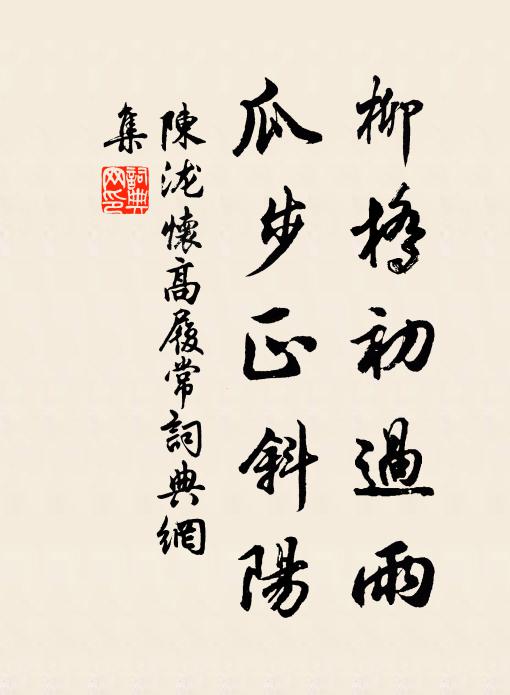 柳橋初過雨
瓜步正斜陽
陳泷懷高履常詞典網
集
詞典网印